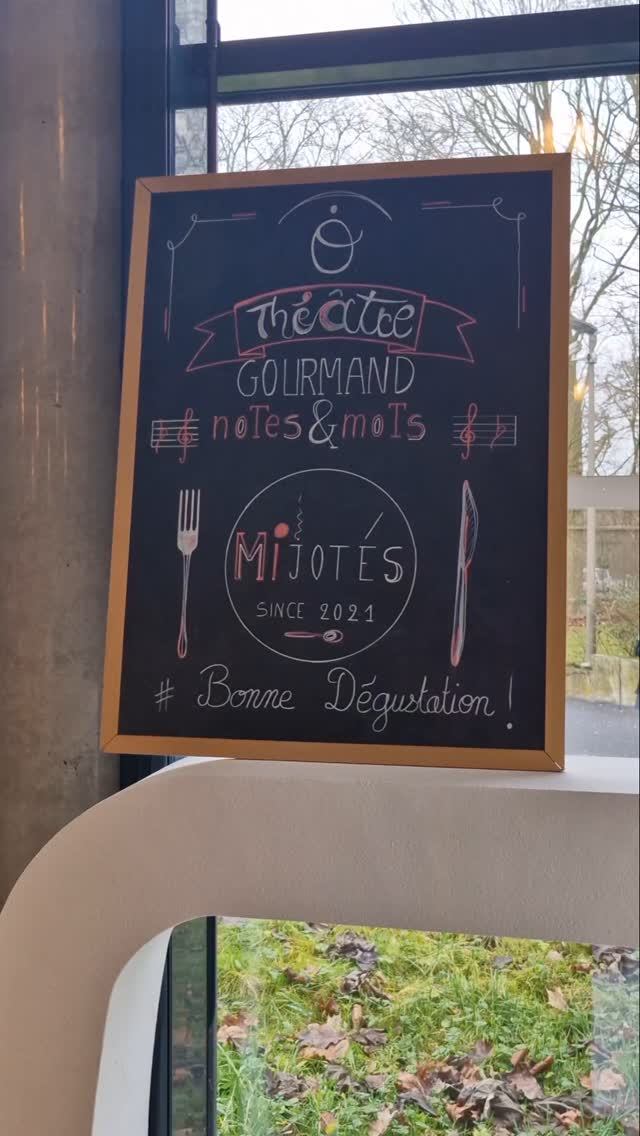 Ô
Théâtre
GOURMAND
noTes & moTs
MiJOTÉS
SINCE 2021
# Bonne Dégustation !